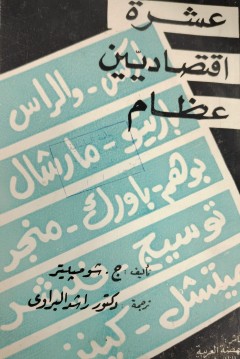 عشرة
اقتصاديين
عظام
والراس
باريتو - مارشال
بوهم - باورك - منجر
توسيج
تأليف ج. شومبيتر
ترجمة دكتور راشد البراوى
ميتشل - كينز